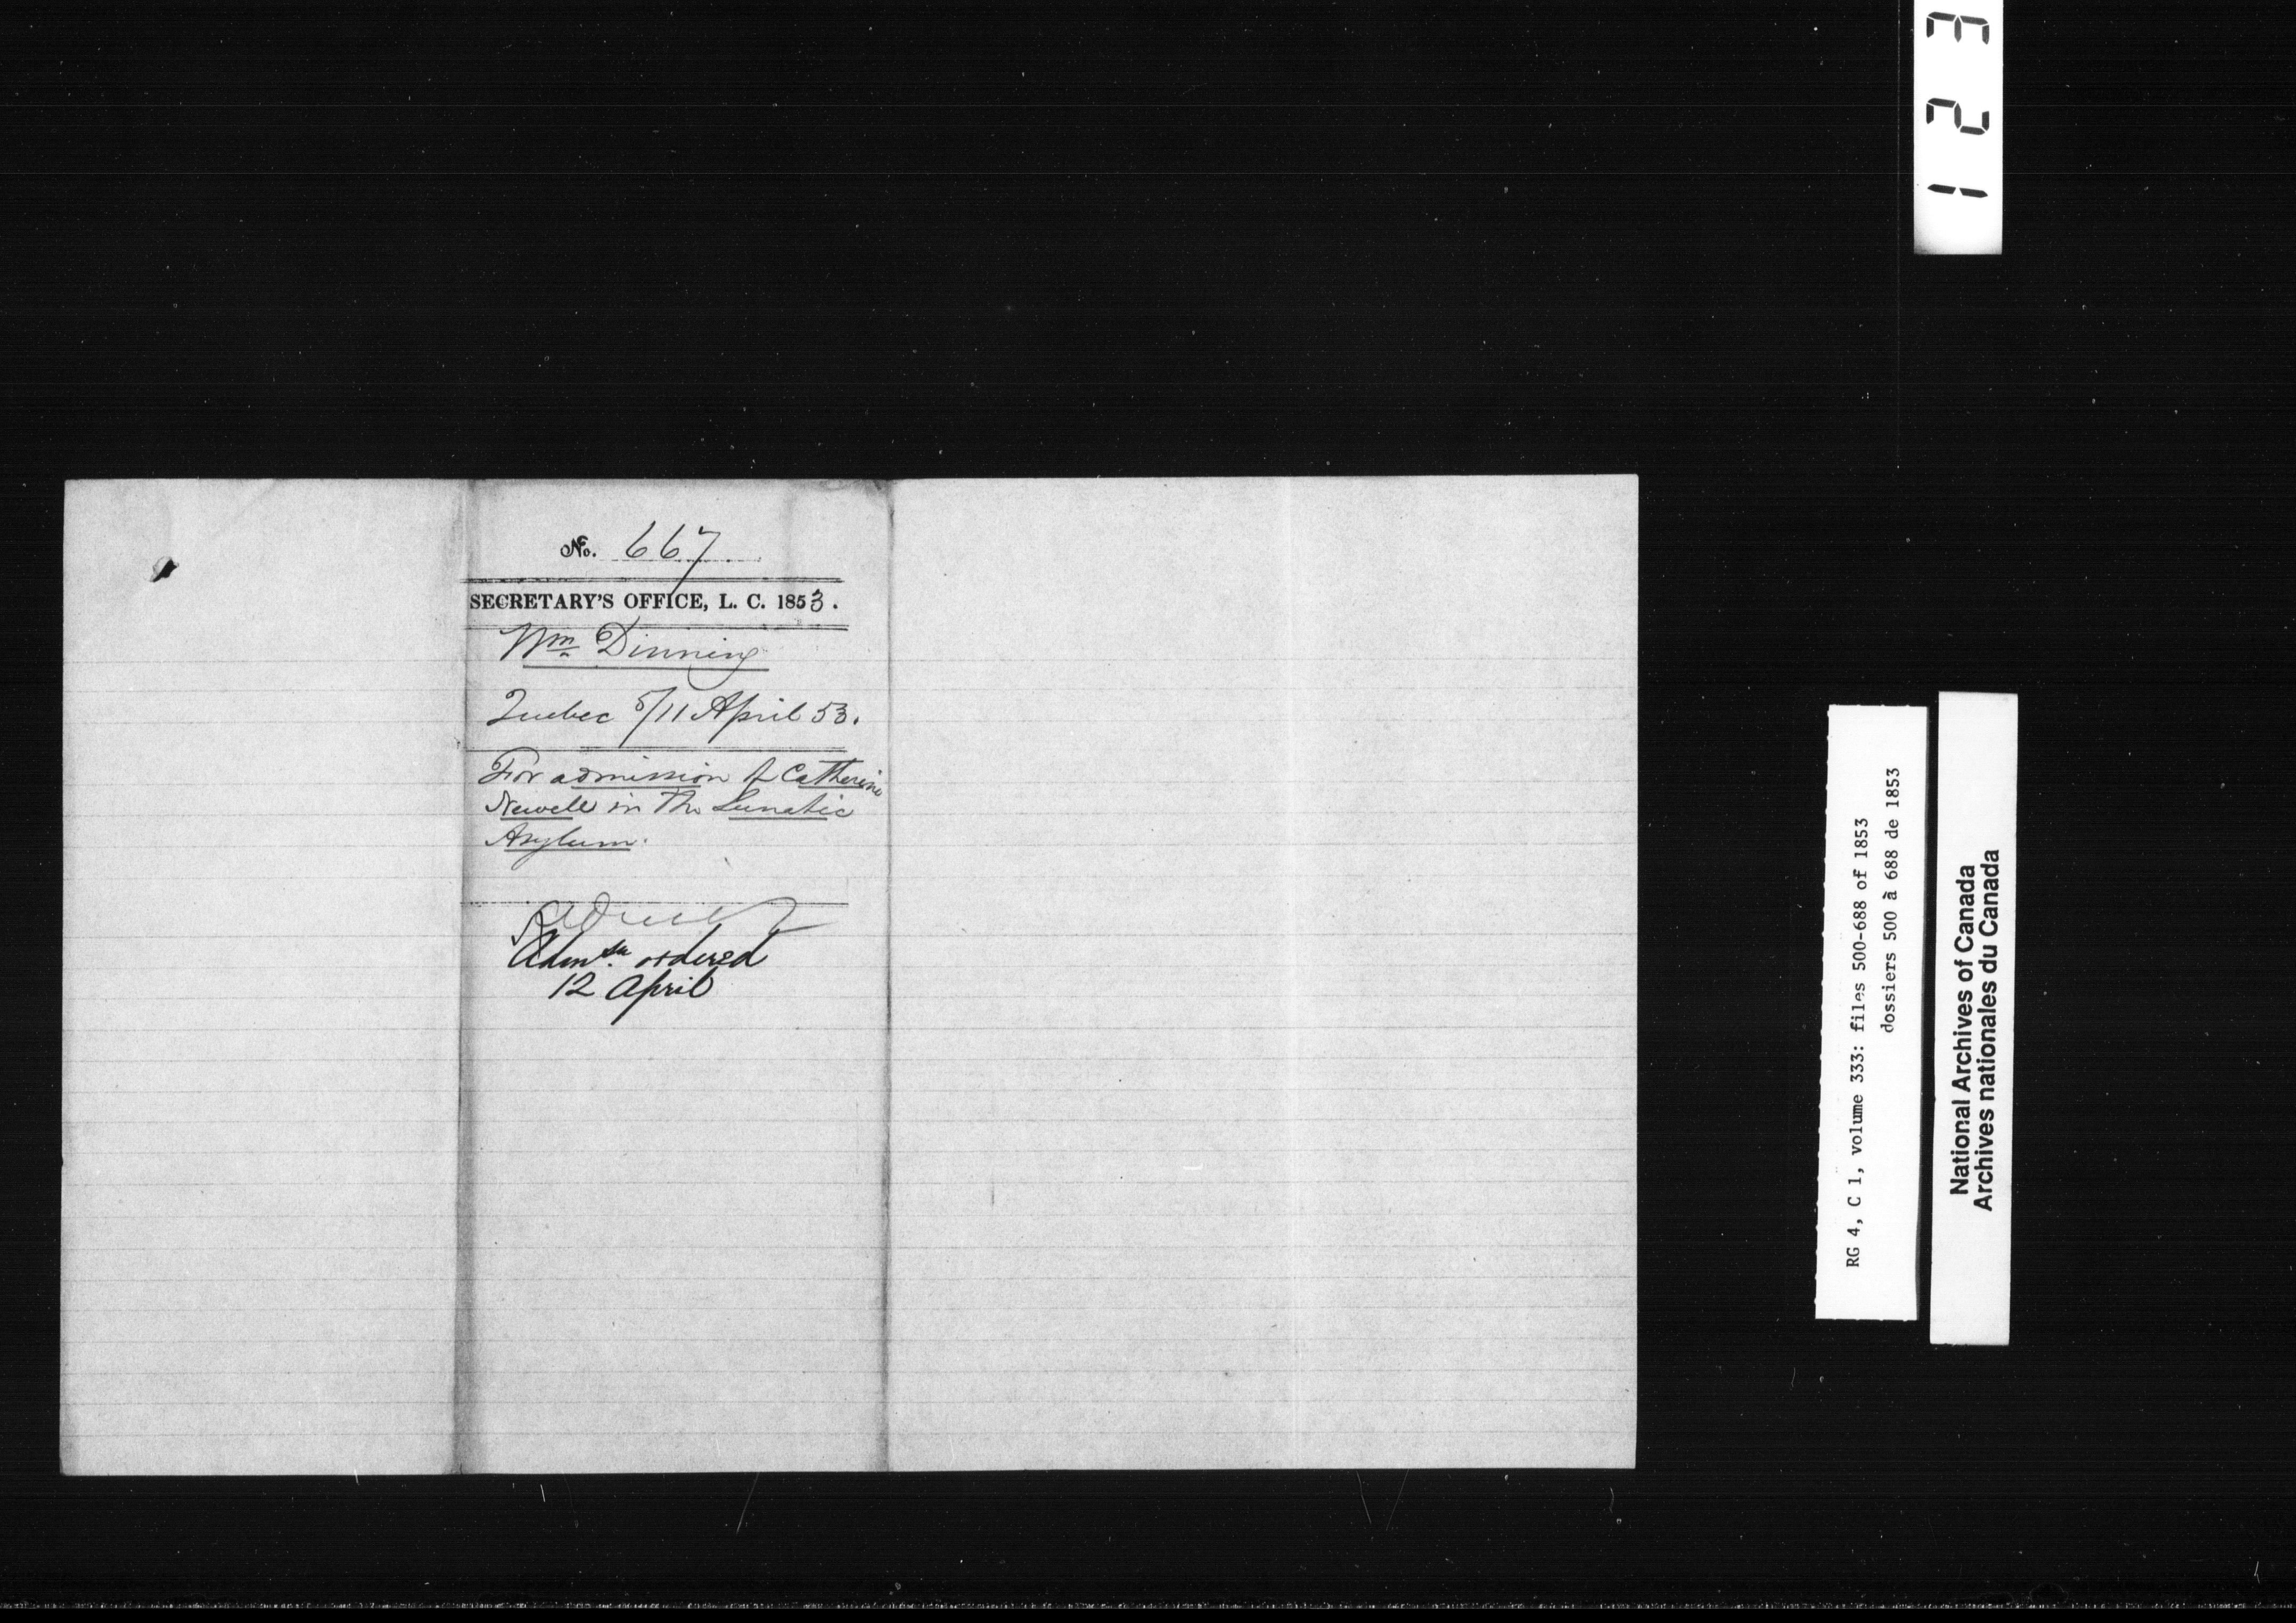 No. 667
SECRETARY'S OFFICE, L. C. 1853.
Wm Dinning
Quebec 5/11 April 53.
For admission of Catherine
Newell in the Lunatic
Asylum.
Admsn. ordered
12 April
1 2 3
RG 4, C 1, volume 333: files 500-688 of 1853
dossiers 500 à 688 de 1853
National Archives of Canada
Archives nationales du Canada